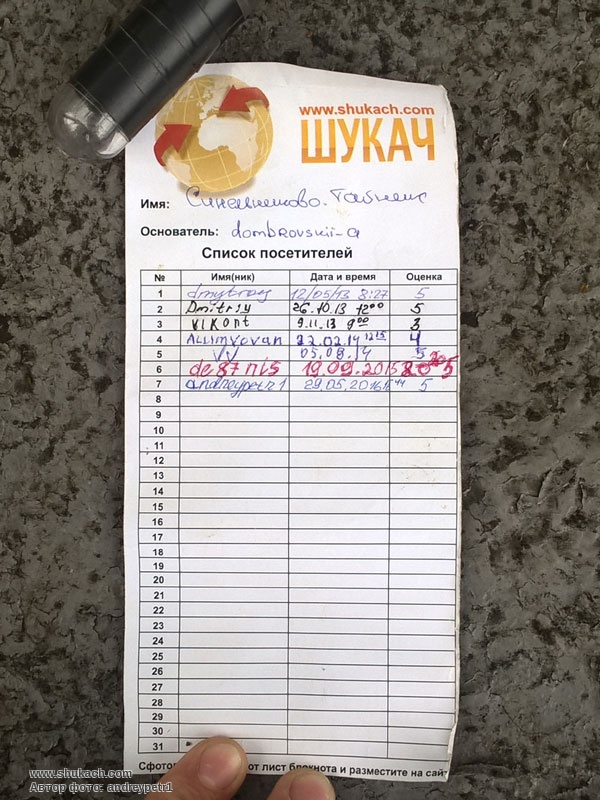 www.shukach.com
ШУКАЧ
Имя: Синельниково. Тайник
Основатель: dombrovskii-a
Список посетителей
№ Имя(ник) Дата и время Оценка
1 dmytroy 12/05/13 8:27 5
2 Dmitrsy 26.10.13 12 00 5
3 VIKont 9.11.13 9 00 3
4 22.02.14 12 15 4
5 VV 05.08.14 5
6 de87nis 19.09.2015 20 20 5
7 andreypetr1 29.05.2016 15 44 5
8
9
10
11
12
13
14
15
16
17
18
19
20
21
22
23
24
25
26
27
28
29
30
31
Сфотог от лист блокнота и разместите на сайт
www.shukach.com
Автор фото: andreypetr1